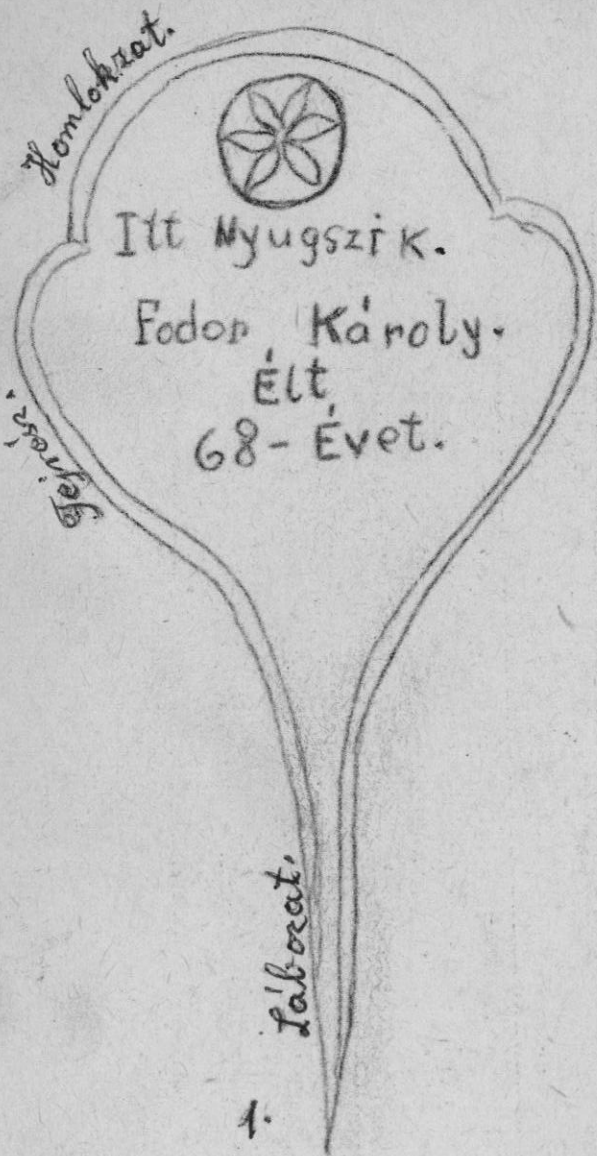 Homlokzat.
Itt Nyugszik.
Fodor Károly.
Élt
68- Évet.
Fejrész.
Lábozat.
1.